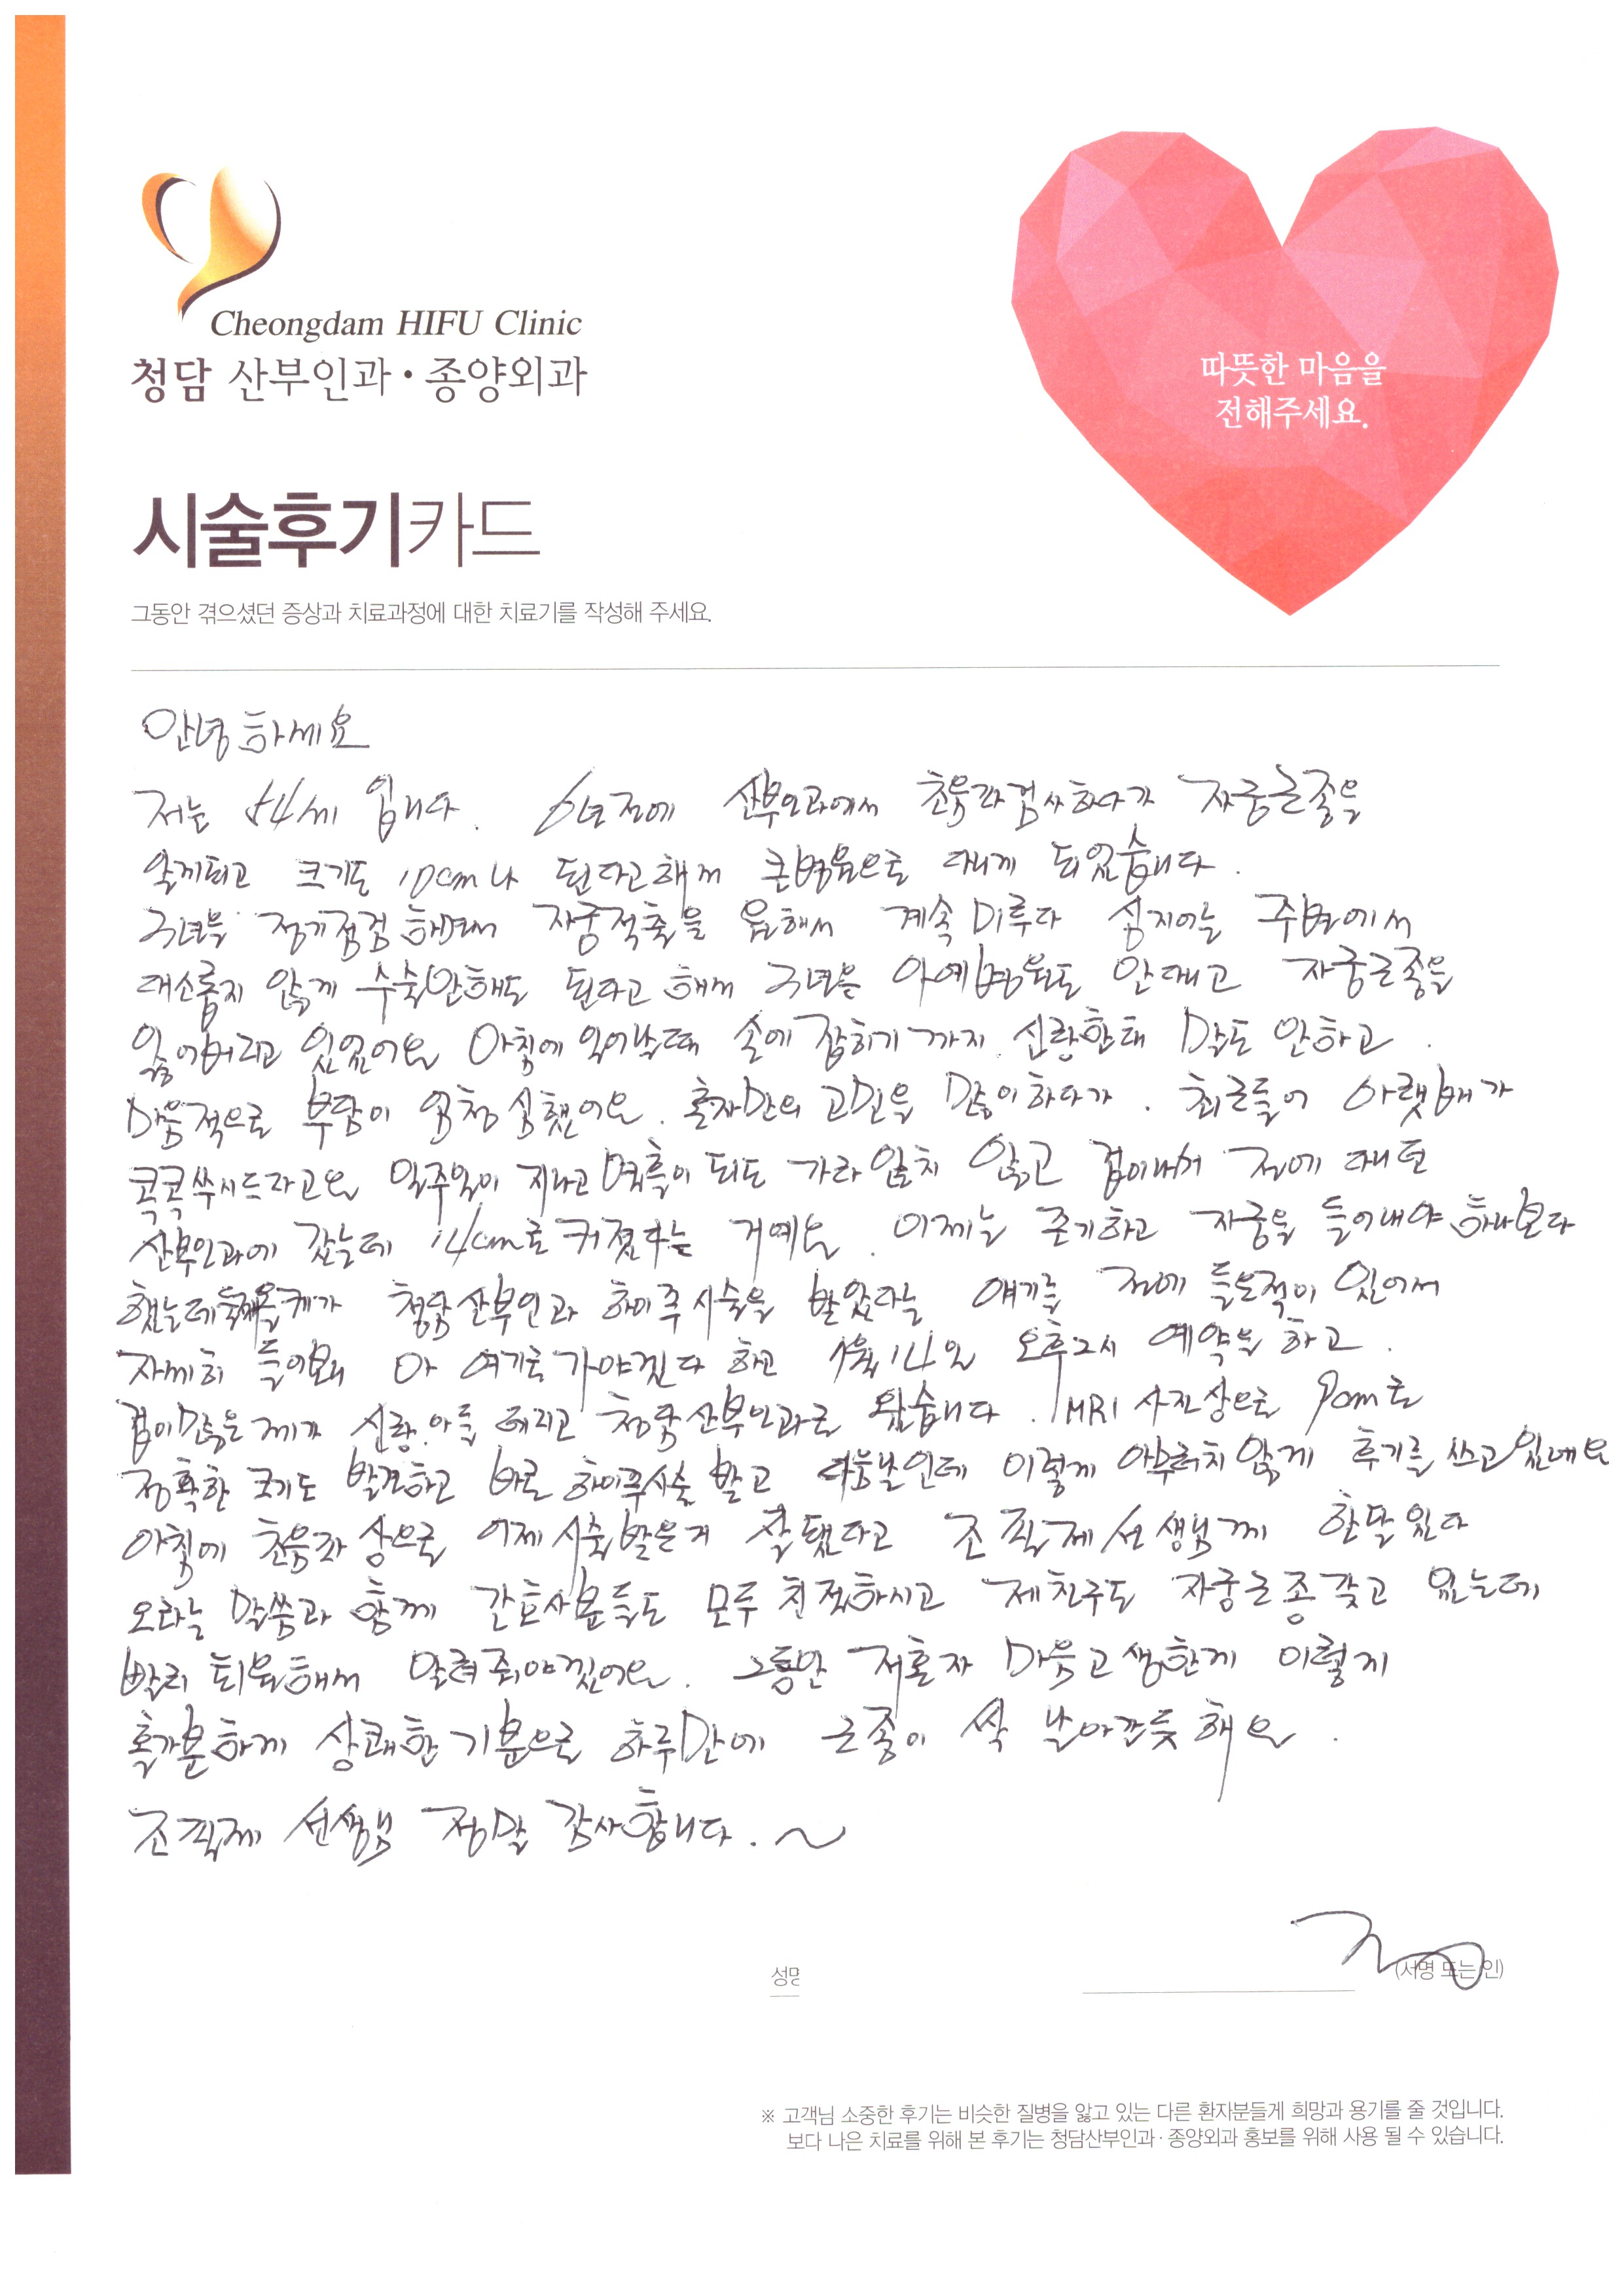 Cheongdam HIFU Clinic
청담 산부인과·종양외과
따뜻한 마음을
전해주세요.
시술후기카드
그동안 겪으셨던 증상과 치료과정에 대한 치료기를 작성해 주세요.
안녕하세요
저는 54세 입니다. 6년전에 산부인과에서 초음파검사하다가 자궁근종을
알게되고 크기도 10cm나 된다고해서 큰병원으로 다니게 되었습니다.
3년을 정기점검하면서 자궁적출을 원해서 계속 미루다 심지어는 주변에서
대소롭지 않게 수술안해도 된다고 해서 3년은 아예병원도 안대고 자궁근종을
잃어버리고 있었어요 아침에 일어날때 손에 잡히기까지. 신랑한태 말도 안하고.
마음적으로 부담이 엄청 심했어요. 혼자만의 고민을 많이하다가. 최근들어 아랫배가
콕콕쑤시드라고요 일주일이 지나고 열흘이 되도 가라앉치 않고 겁이나서 전에 다니던
산부인과에 갔는데 14cm로 커졌다는 거예요. 이제는 포기하고 자궁을 들어내야 하나보다
했는데 올케가 청담산부인과 하이푸시술을 받았다는 얘기를 전에 들은적이 있어서
자세히 들어보니 아 여기로 가야겠다 하고 14일 오후2시 예약을 하고.
겁이많은 제가 신랑.아들 데리고 청담산부인과로 왔습니다. MRI 사진상으로 9cm로
정확한 크기도 발견하고 바로 하이푸시술 받고 다음날인데 이렇게 아무렇치 않게 후기를 쓰고 있네요
아침에 초음파 상으로 어제시술받은게 잘됐다고 조직제선생님께 한달있다
오라는 말씀과 함께 간호사분들도 모두 친절하시고 제친구도 자궁근종 갖고 있는데
빨리 퇴원해서 알려줘야겠어요. 그동안 저혼자 마음고생한게 이렇게
홀가분하게 상쾌한 기분으로 하루만에 근종이 싹 날아간듯 해요.
조직제 선생님 정말 감사합니다.~
성명
(서명 또는 인)
※ 고객님 소중한 후기는 비슷한 질병을 앓고 있는 다른 환자분들게 희망과 용기를 줄 것입니다.
보다 나은 치료를 위해 본 후기는 청담산부인과·종양외과 홍보를 위해 사용 될 수 있습니다.